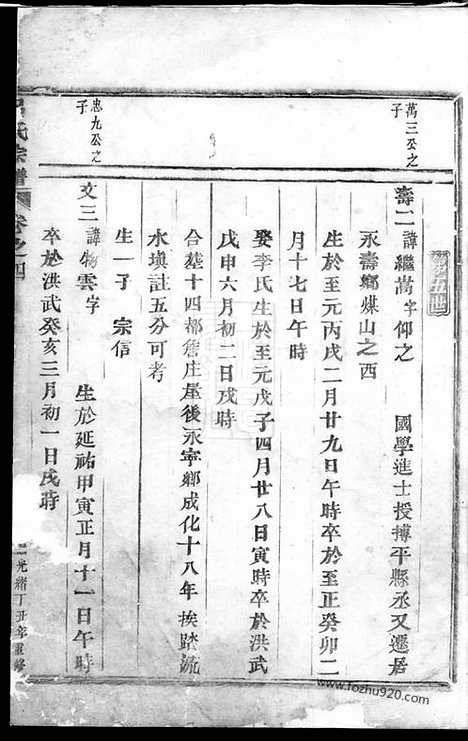 第五世
萬三公之子
壽二 諱繼嵩字仰之 國學進士授搏平縣丞又遷居
永壽鄉煤山之西
生於至元丙戌二月廿九日午時卒於至正癸卯二
月十七日午時
娶李氏生於至元戊子四月廿八日寅時卒於洪武
戊申六月初二日戌時
合塟十四都詹庄屋後永寧鄉成化十八年挨踏流
水塤註五分可考
生一子 宗信
忠九公之子
文三 諱雲字 生於延祐甲寅正月十一日午時
卒於洪武癸亥三月初一日戌時
氏宗譜 卷之四 光緒丁丑年重修
www.fozhu920.com